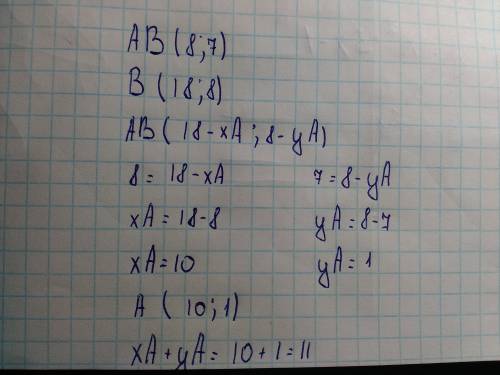 AB (8;7)
B (18;8)
AB ( 18-xA ; 8-yA)
8 = 18-xA 7 = 8-yA
xA = 18-8 yA = 8-7
xA = 10 yA = 1
A ( 10 ; 1)
xA + yA = 10 + 1 = 11